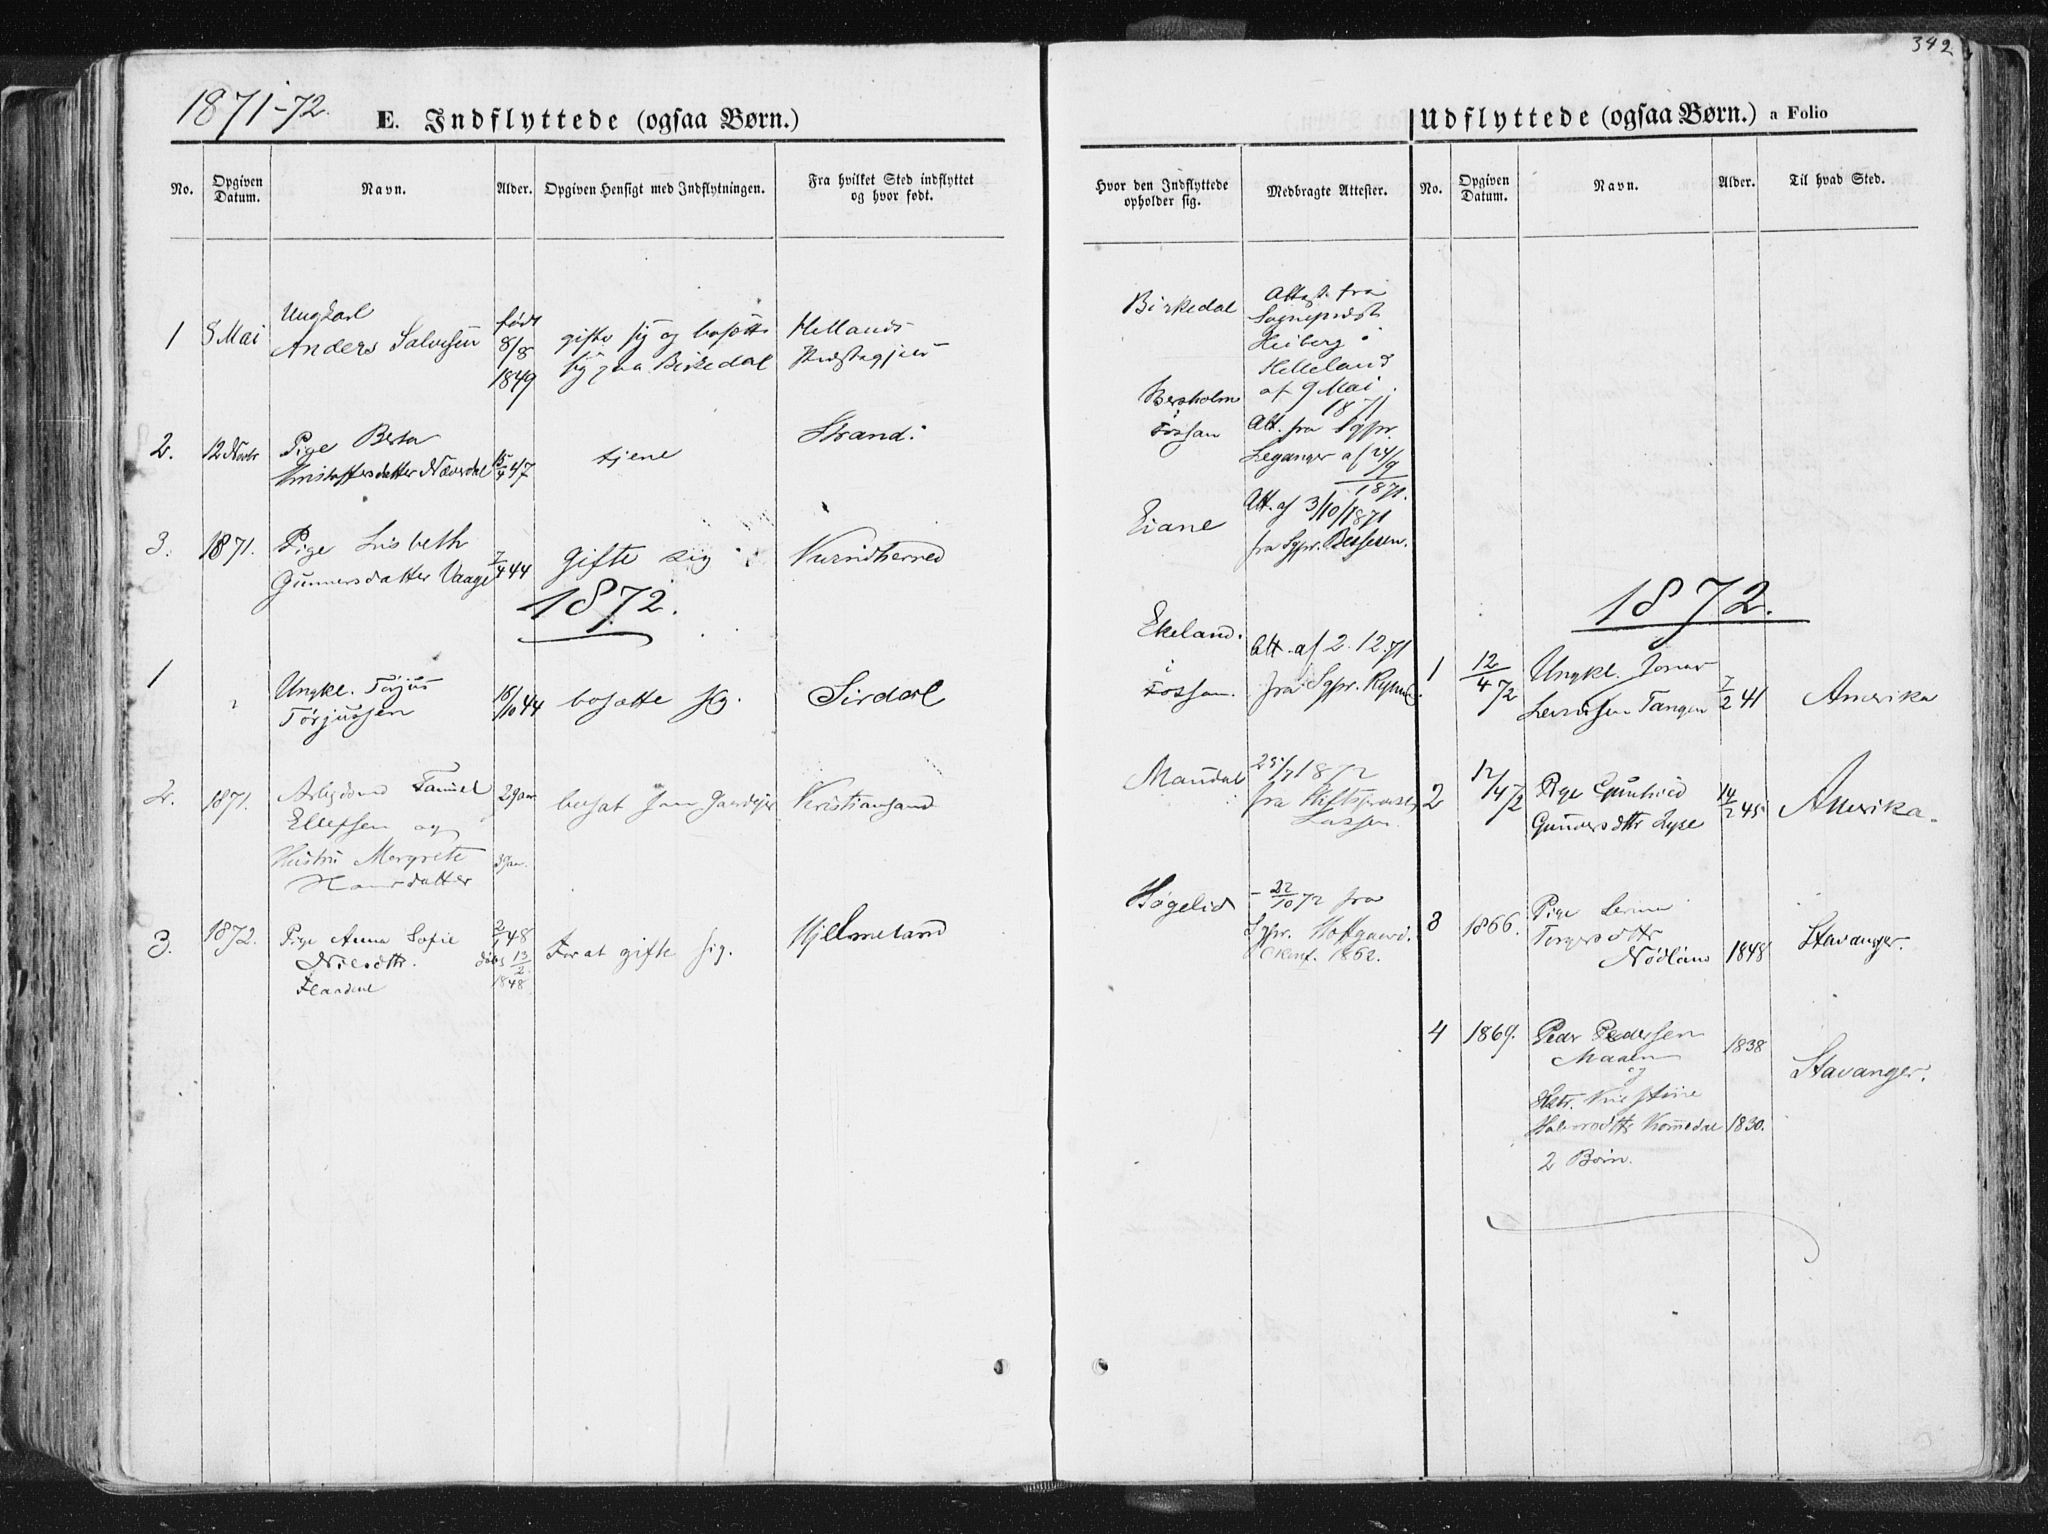 342
1871-72.
E. Indflyttede (ogsaa Børn.)
No.
Opgiven Datum.
Navn.
Alder.
Opgiven Hensigt med Indflytningen.
Fra hvilket Sted indflyttet
og hvor født.
1
8 Mai
Ungkarl
Anders Salvesen
født
8/8
1849
gifte sig og bosætte
sig paa Birkedal
Hellands
Præstegjeld
2.
12 Novbr
Pige Berta
Kristoffersdatter Næverdal
15/4 47
tjene
Strand.
3.
1871.
Pige Lisbeth
Gunnersdatter Vaage
7/4 44
Gifte sig
Kvindherred
1872.
1
Ungkl. Tørjus
Tørjussen
16/10 44
bosætte sig.
Sirdal
2.
1871.
Ellefsen og
Hustru Margrete
Hansdatter
bosat som Gaardejer
Kristiansand
3.
1872.
Pige Anna Sofie
Nilsdtr.
2/1 48
døbt 13/2
1848
For at gifte sig.
Hjelmeland
Udflyttede (ogsaa Børn.) a Folio
Hvor den Indflyttede
opholder sig.
Medbragte Attester.
No.
Opgiven Datum.
Navn.
Alder.
Til hvad Sted.
Birkedal
Attest fra
Sognepræst
Heiberg i
Helleland
af 9 Mai
1871
Bersholm
i
Fossan
Att. fra Sgpr.
Leganger af 24/9
1871.
Eiane
Att. af 3/10/1871
fra Sgpr. Bessesen.
Ekeland.
i
Fossan.
Att. af 2.12.71
fra Sgpr.
Maudal
25/7 1872
fra Stiftsprovst
Lassen
Høgelid
- 22/10 72 fra
Sgpr. Hofgaard.
Konf. 1862.
1872.
1
12/4 72
Ungkl. Jonas
Tangen
7/2 41
Amerika
2
12/4 72
Pige Gunhild
Gunnersdttr Lyse
14/2 45
Amerika.
3
1866.
Pige Serina
Torgersdttr
Nødland
1848
Stavanger.
4
1869.
Peder Pedersen
Maalen
og
1838
Stavanger.
Hstr. Kristine
Halvorsdttr Kommedal
1830.
2 Børn.